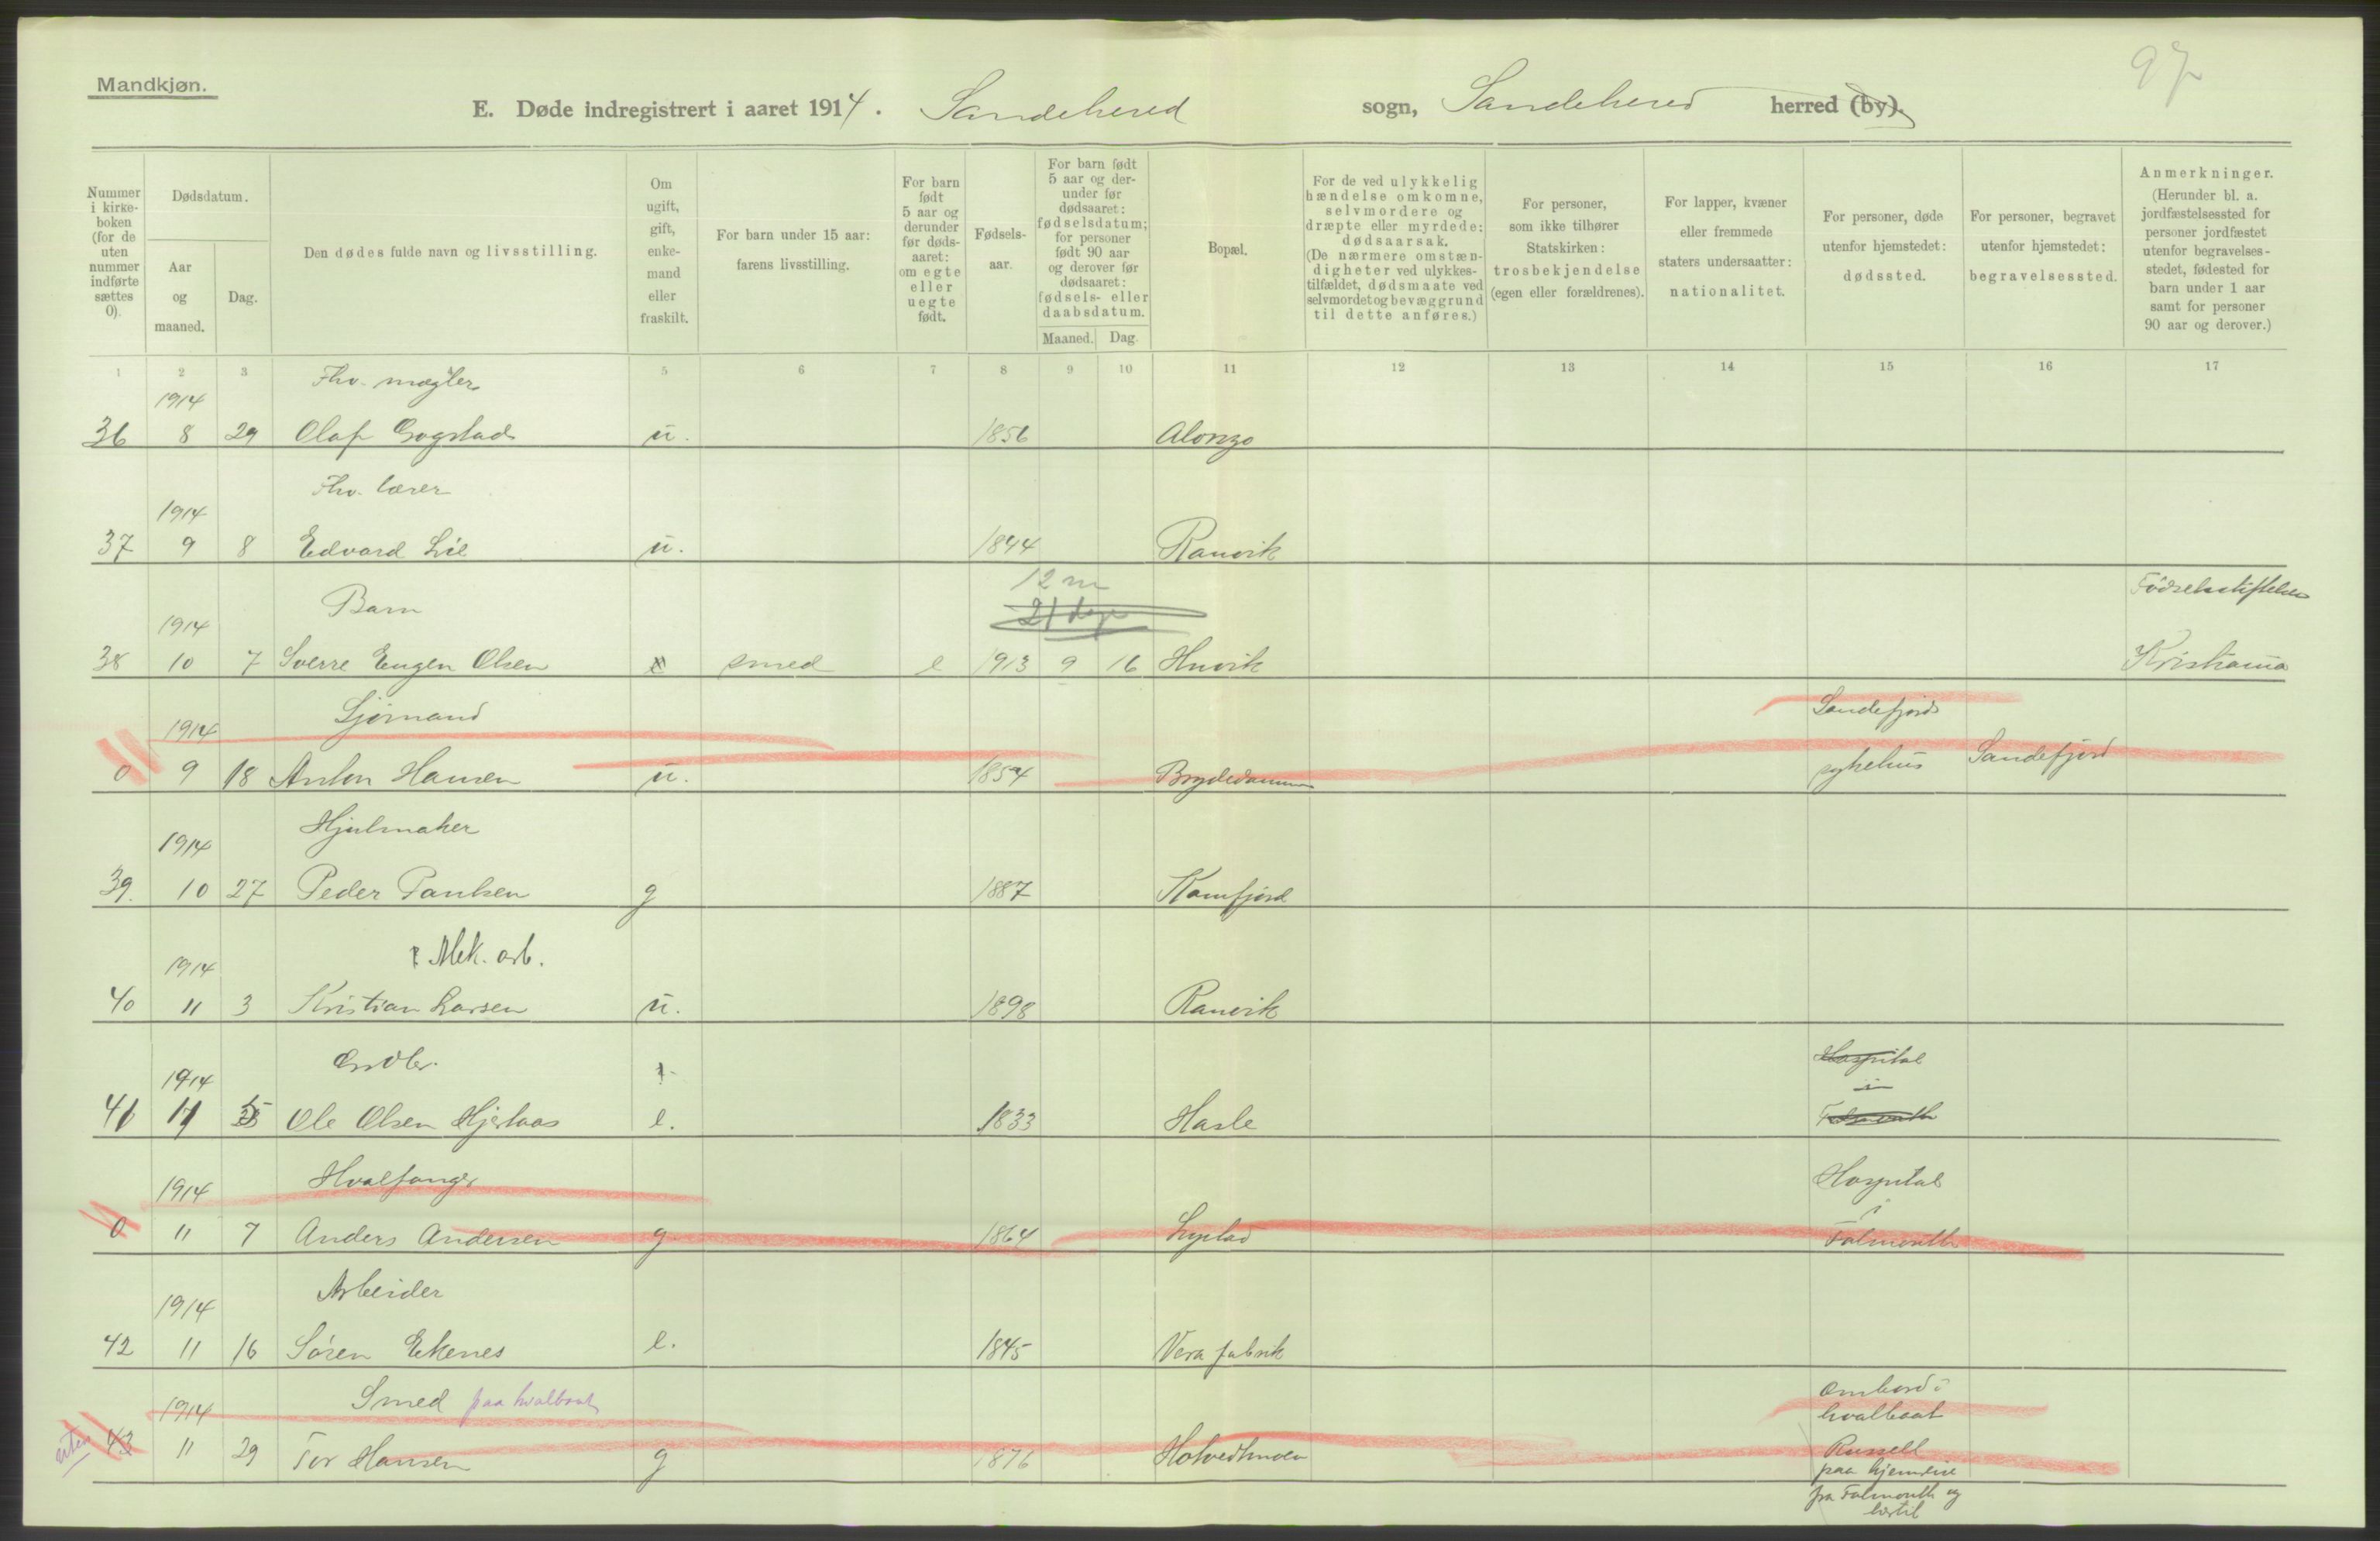 97
Mandkjøn.
E. Døde indregistrert i aaret 1914. Sandehered sogn, Sandehered herred (by).
Nummer i kirkeboken (for de uten nummer indførte sættes 0).
Dødsdatum.
Aar og maaned.
Dag.
Den dødes fulde navn og livsstilling.
Om ugift, gift, enkemand eller fraskilt.
For barn under 15 aar: farens livsstilling.
For barn født 5 aar og derunder før dødsaaret: om egte eller uegte født.
Fødselsaar.
For barn født 5 aar og derunder før dødsaaret: fødselsdatum; for personer født 90 aar og derover før dødsaaret: fødsels- eller daabsdatum.
Maaned. Dag.
Bopæl.
For de ved ulykkelig hændelse omkomne, selvmordere og dræpte eller myrdede: dødsaarsak. (De nærmere omstændigheter ved ulykkestilfældet, dødsmaate ved selvmordet og bevæggrund til dette anføres.)
For personer, som ikke tilhører Statskirken: trosbekjendelse (egen eller forældrenes).
For lapper, kvæner eller fremmede staters undersaatter: nationalitet.
For personer, døde utenfor hjemstedet: dødssted.
For personer, begravet utenfor hjemstedet: begravelsessted.
Anmerkninger. (Herunder bl. a. jordfæstelsessted for personer jordfæstet utenfor begravelsesstedet, fødested for barn under 1 aar samt for personer 90 aar og derover.)
1 2 3 4 5 6 7 8 9 10 11 12 13 14 15 16 17
Fhv. mægler
1914
36 8 29 Olaf Gogstad u. 1856 Alonzo
Fhv. lærer
1914
37 9 8 Edvard Lie u. 1844 Ranvik
12 m
Barn 21 dage Fødselsstiftelsen
1914
38 10 7 Sverre Eugen Olsen smed e 1913 9 16 Huvik Kristiania
Sjømand Sandefjords
1914
0 9 18 Anton Hansen u. 1854 Brydedammen sykehus Sandefjord
Hjulmaker
1914
39. 10 27 Peder Paulsen g 1887 Kamfjord
Mek. arb.
1914
40 11 3 Kristian Larsen u. 1898 Ranvik
Hospital
1914 i
41 11 5 Ole Olsen Hjertaas e. 1833 Hasle Falmouth
Hvalfanger Hospital
1914 i
0 11 7 Anders Andersen g 1864 Falmouth
Arbeider
1914
42 11 16 Søren Ekenes e. 1845 Vera fabrik
Smed paa hvalbaat ombord i
1914 hvalbaat
43 11 29 Tor Hansen g 1876 Hotvedtmoen Russell
paa hjemreise
fra Falmouth og